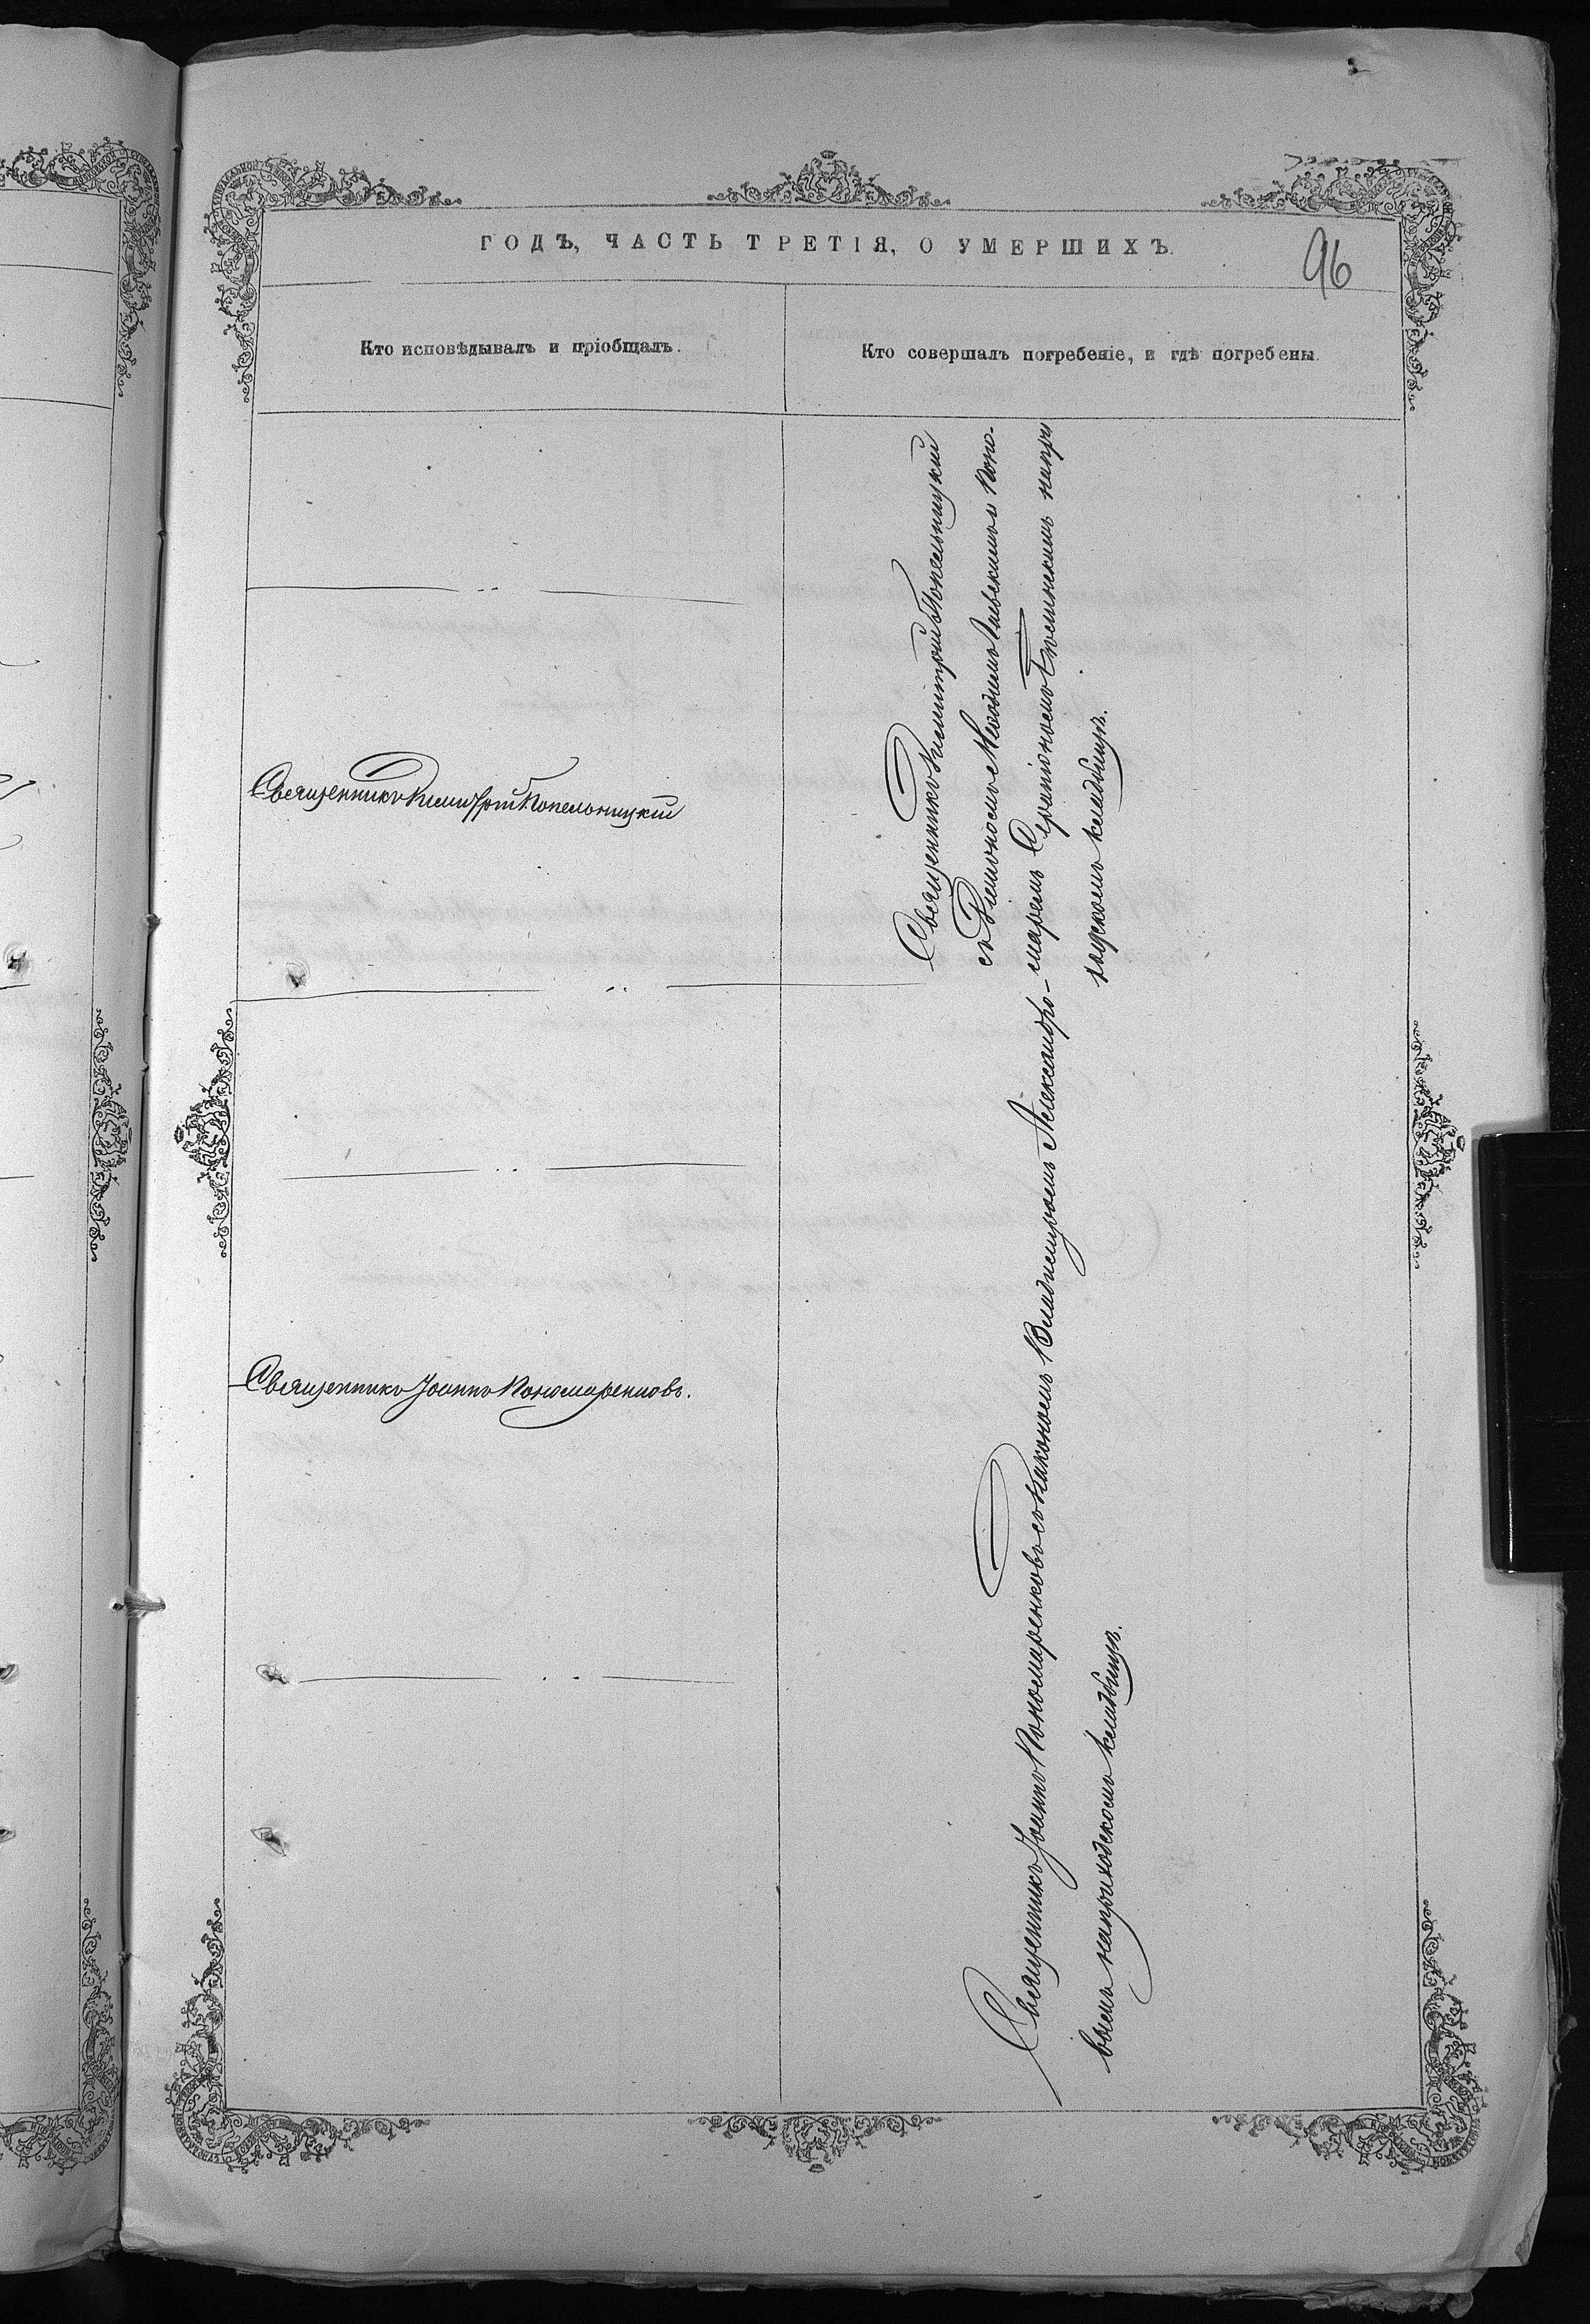 ГОДЪ, ЧАСТЬ ТРЕТІЯ, О УМЕРШИХЪ.
96
Кто исповѣдывалъ и пріобщалъ.
Кто совершалъ погребеніе, и гдѣ погребены.
Священникъ Димитрій Копельницкій
Священникъ Димитрій Копельницкій
съ Діакономъ и Поно-
маремъ на при
ходскомъ кладбищѣ.
Священникъ Іоаннъ Пономаренковъ.
Священникъ Іоаннъ Пономаренковъ съ Діакономъ Владиміромъ Александро-
вымъ на приходскомъ кладбищѣ.